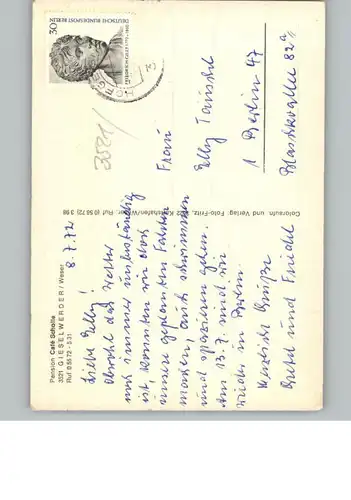 Pension Café Scholle
3521 GIESELWERDER / Weser
Ruf 0 55 72 - 3 31
8.7.72
Liebe Elly!
Obwohl das Wetter
noch immer unbeständig
ist, konnten wir doch
unsere geplanten Fahrten
machen, auch schwimmen
und spazieren gehen.
Am 13.7. sind wir
wieder in Berlin.
Herzliche Grüße
und Friedel
Coloraufn. und Verlag: Foto-Fritz, Karlshafen/Weser, Ruf (0 56 72) 3 98
3521/
30
DEUTSCHE BUNDESPOST
BERLIN
Frau
Elly
1 Berlin 47
Blaschkoallee 82a